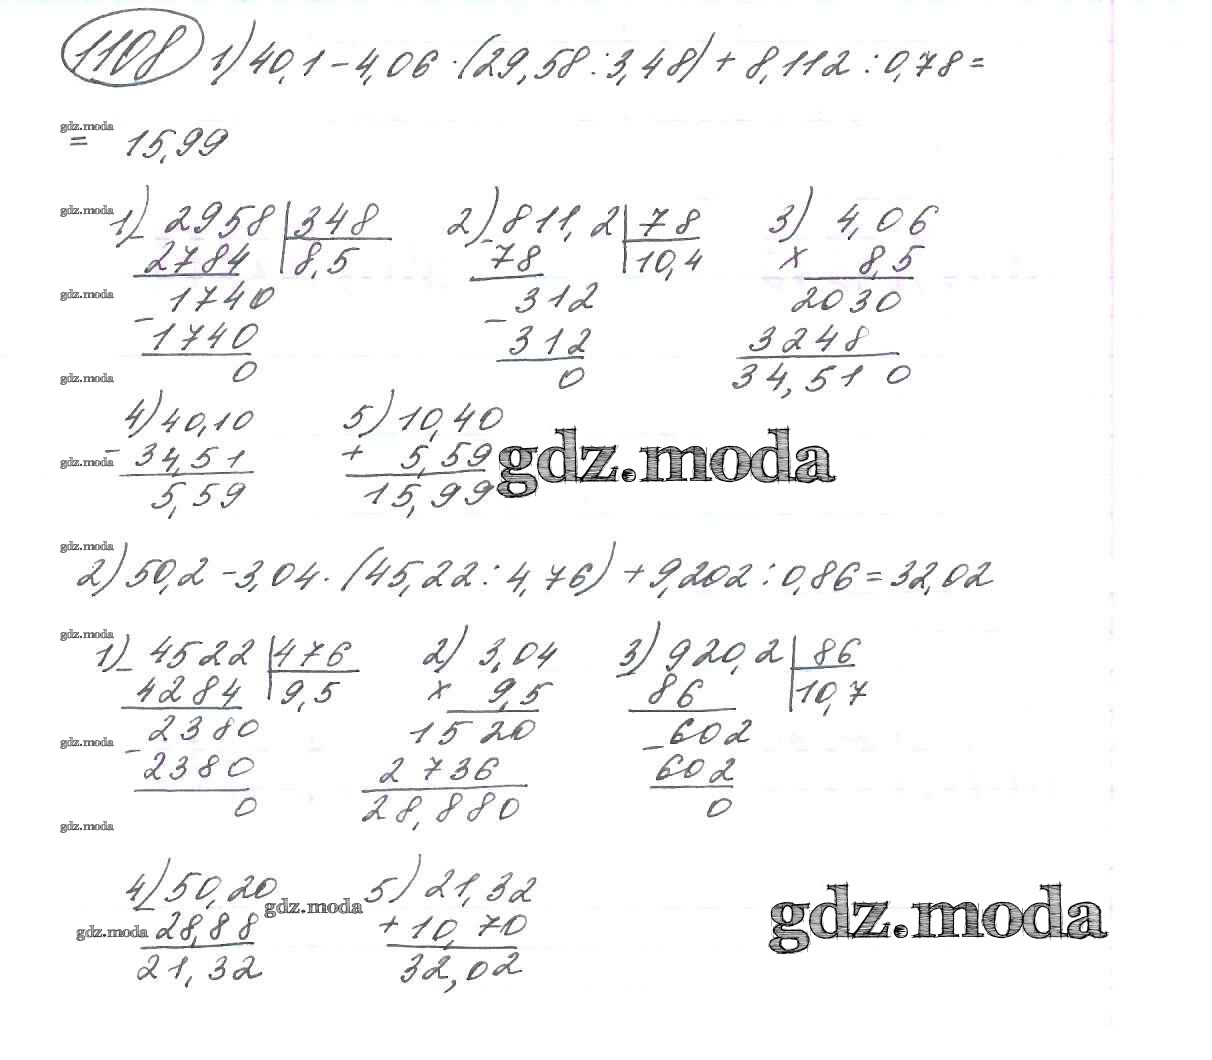 1108 1) 40,1 - 4,06 · (29,58 : 3,48) + 8,112 : 0,78 =
gdz.moda
= 15,99
gdz.moda
1) 2958 | 348 2) 811,2 | 78 3) 4,06
- 2784 | 8,5 - 78 | 10,4 × 8,5
gdz.moda
1740 312 2030
- 1740 - 312 3248
0 0 34,510
gdz.moda
4) 40,10 5) 10,40
gdz.moda
- 34,51 + 5,59 gdz.moda
5,59 15,99
gdz.moda
2) 50,2 - 3,04 · (45,22 : 4,76) + 9,202 : 0,86 = 32,02
gdz.moda
1) 4522 | 476 2) 3,04 3) 920,2 | 86
- 4284 | 9,5 × 9,5 - 86 | 10,7
gdz.moda
2380 1520 602
- 2380 2736 - 602
0 28,880 0
gdz.moda
4) 50,20 gdz.moda 5) 21,32
gdz.moda - 28,88 + 10,70 gdz.moda
21,32 32,02